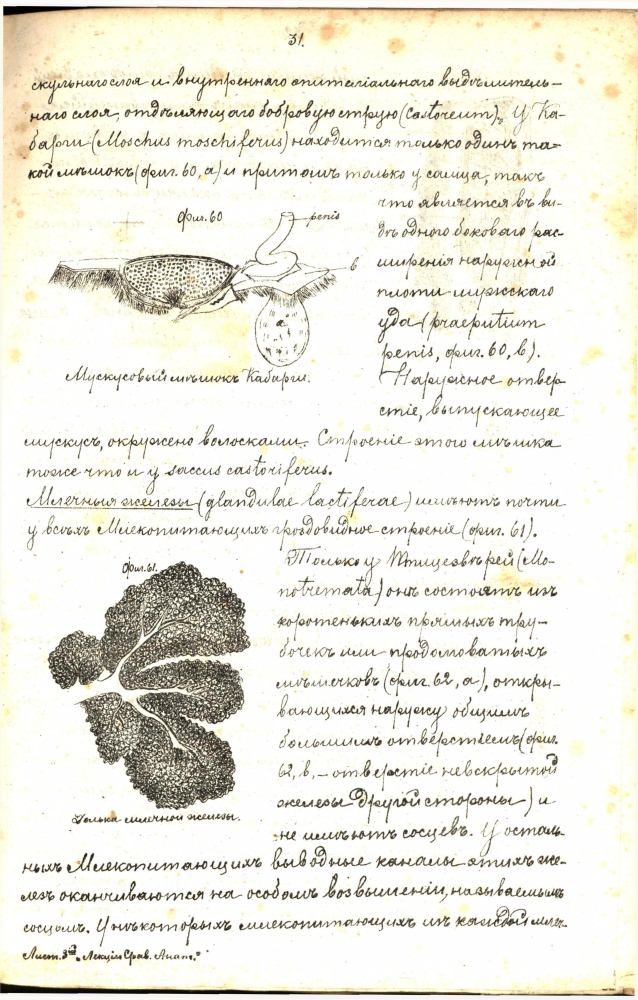 31.
скульнаго слоя и внутренняго эпителіальнаго выдѣлитель-
наго слоя, отдѣляющаго бобровую струю (castoreum). У Ка-
барги (Moschus moschiferus) находится только одинъ та-
кой мѣшокъ (фиг. 60, а) и притомъ только у самца, такъ
что является въ ви-
дѣ одного боковаго рас-
ширенія наружной
плоти мужскаго
уда (praeputium
penis, фиг. 60, b).
Фиг. 60
penis
в
a
Мускусовый мѣшокъ Кабарги.
Наружное отвер-
стіе, выпускающее
мускусъ, окружено волосками. Строеніе этого мѣшка
тоже что и у saccus castoriferus.
Млечныя железы (glandulae lactiferae) имѣютъ почти
у всѣхъ Млекопитающихъ гроздовидное строеніе (фиг. 61).
Фиг. 61.
Долька млечной железы.
Только у Птицезвѣрей (Mo-
notremata) онѣ состоятъ изъ
коротенькихъ прямыхъ тру-
бочекъ или продолговатыхъ
мѣшечковъ (фиг. 62, а), откры-
вающихся наружу общимъ
большимъ отверстіемъ (фиг.
62, b, – отверстіе невскрытой
железы другой стороны) и
не имѣютъ сосцевъ. У осталь-
ныхъ Млекопитающихъ выводные каналы этихъ же-
лезъ оканчиваются на особомъ возвышеніи, называемымъ
сосцомъ. У нѣкоторыхъ млекопитающихъ изъ каждой млеч-
Лист. 3й „Лекціи Срав. Анат."